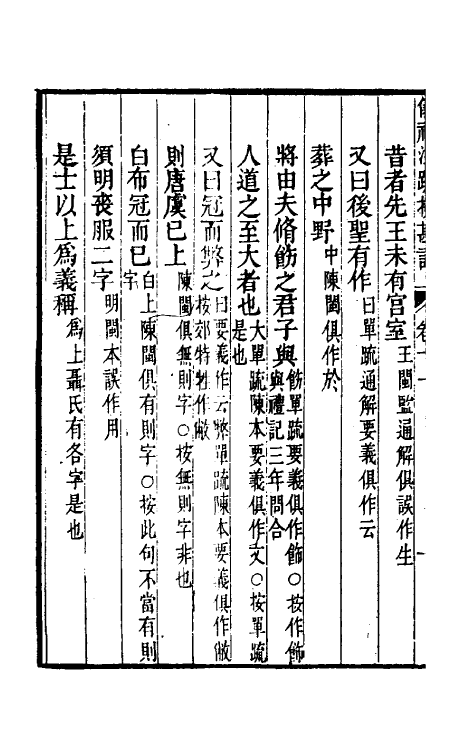 昔者先王未有宮室 王閩監通解俱誤作生
又曰後聖有作 曰單疏通解要義俱作云
葬之中野 中陳閩俱作於
將由夫脩飭之君子與 飭單疏要義俱作飾○按作飾與禮記三年問合
人道之至大者也 大單疏陳本要義俱作文○按單疏是也
又曰冠而弊之 曰要義作云弊單疏陳本要義俱作敝按郊特牲作敝
則唐虞已上 陳閩俱無則字○按無則字非也
白布冠而已 白上陳閩俱有則字○按此句不當有則字
須明喪服二字 明閩本誤作用
是士以上爲義稱 爲上聶氏有各字是也